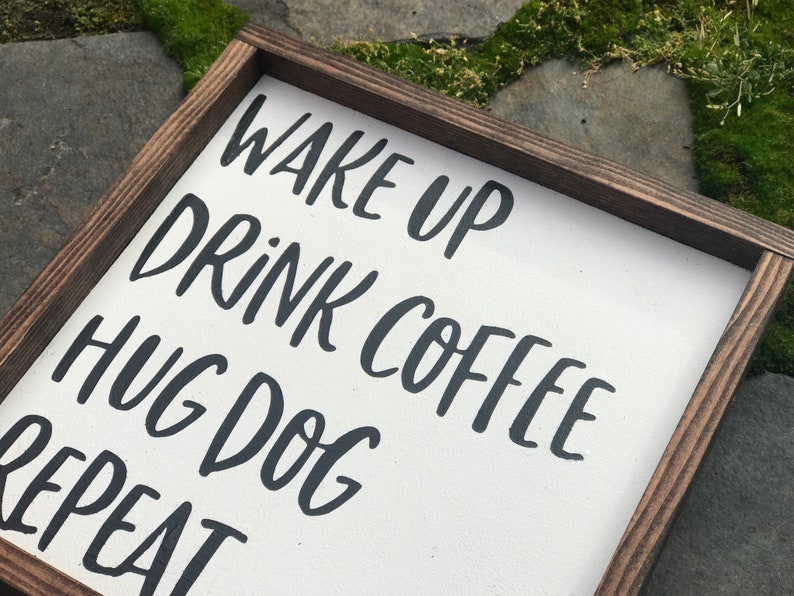 WAKE UP
DRiNK COFFEE
HUG DOG
REPEAT